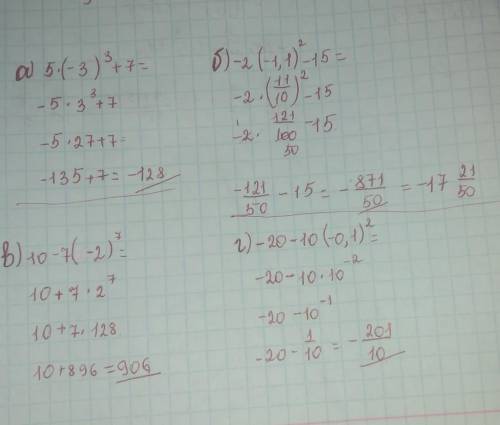 а) 5·(-3)³+7=
-5·3³+7
-5·27+7=
-135+7=-128
б) -2(-1,1)²-15=
-2·(11/10)²-15
-2·121/100-15
50
-121/50-15=-871/50=-17 21/50
в) 10-7(-2)⁷=
10+7·2⁷
10+7·128
10+896=906
г) -20-10(-0,1)²=
-20-10·10⁻²
-20-10⁻¹
-20-1/10=-201/10